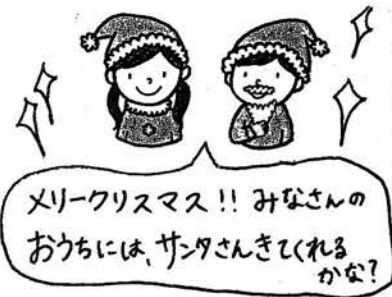 メリークリスマス!! みなさんの
おうちには、サンタさんきてくれる
かな?